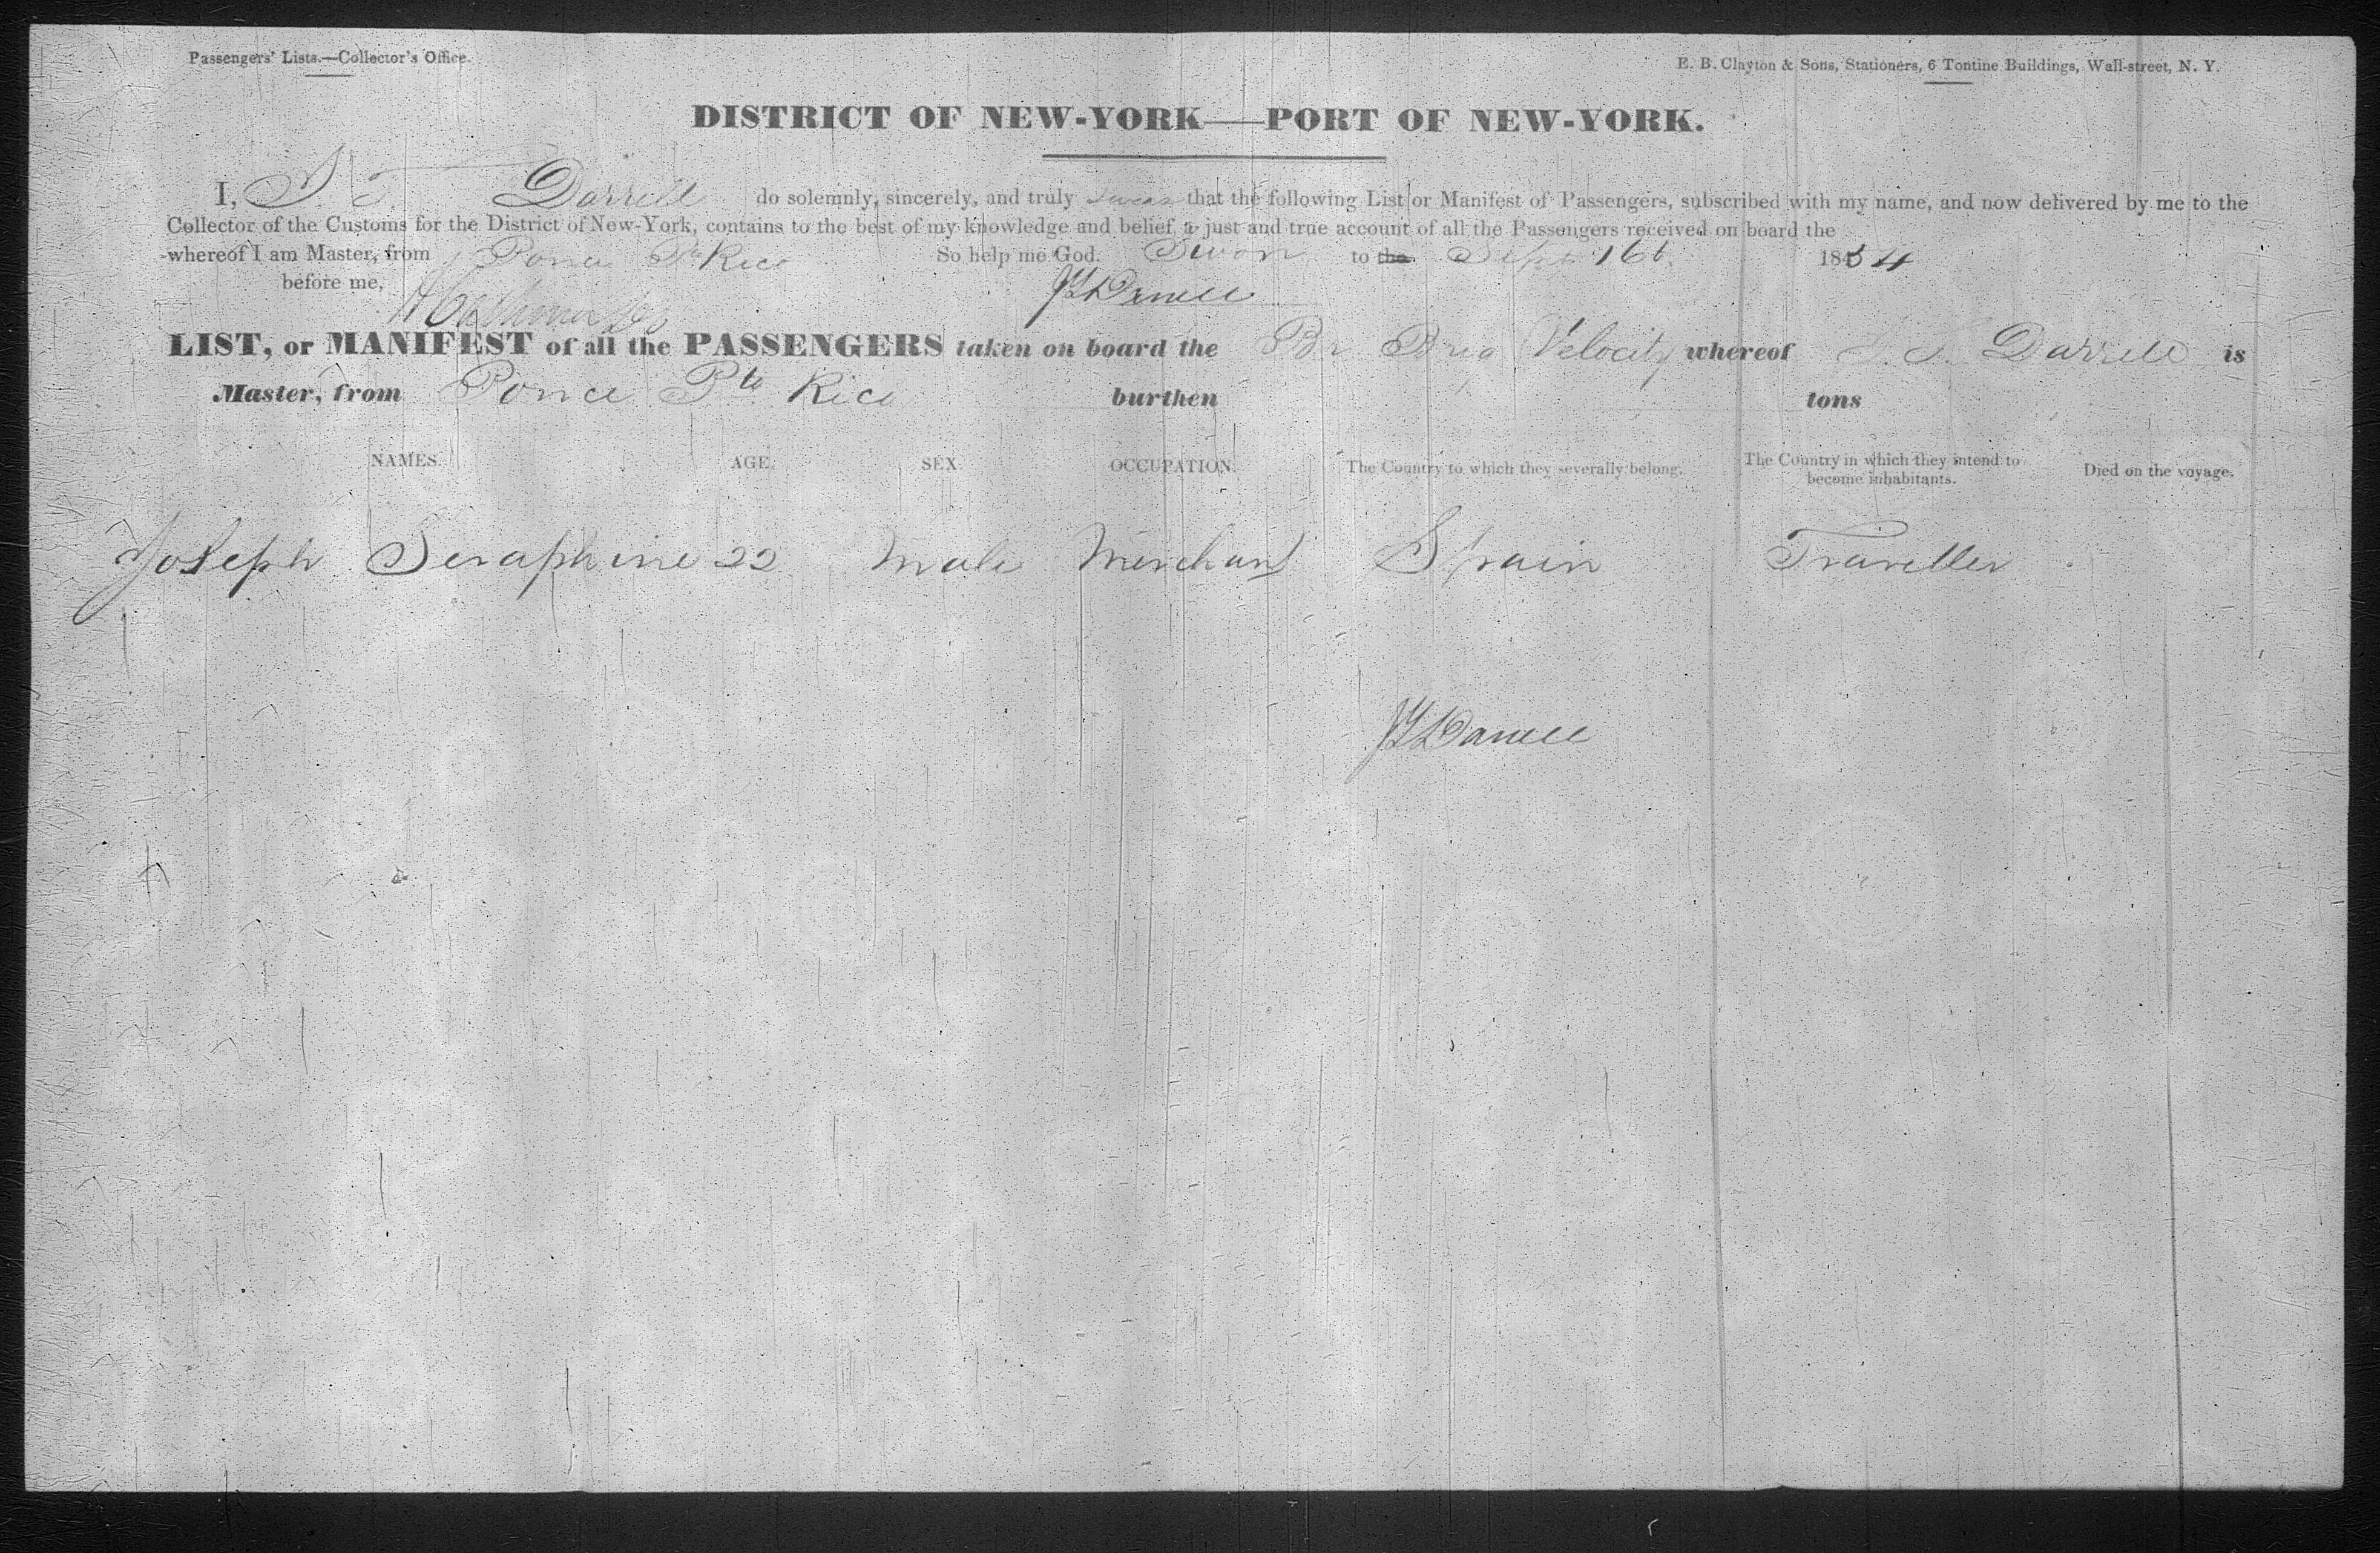 Passengers' Lists.—Collector's Office.
E. B. Clayton & Sons, Stationers, 6 Tontine Buildings, Wall-street, N. Y.
DISTRICT OF NEW-YORK—PORT OF NEW-YORK.
I, Darrell do solemnly, sincerely, and truly swear that the following List or Manifest of Passengers, subscribed with my name, and now delivered by me to the
Collector of the Customs for the District of New-York, contains to the best of my knowledge and belief, a just and true account of all the Passengers received on board the
whereof I am Master, from Ponce Pto Rico So help me God. Swon to the Sept 16t 1854
before me, Darrell
LIST, or MANIFEST of all the PASSENGERS taken on board the Br Brig Velocity whereof Darrell is
Master, from Ponce Pto Rico burthen tons
NAMES. AGE. SEX OCCUPATION. The Country to which they severally belong. The Country in which they intend to become inhabitants. Died on the voyage.
Joseph Seraphine 22 Male Merchant Spain Traveller
Darrell